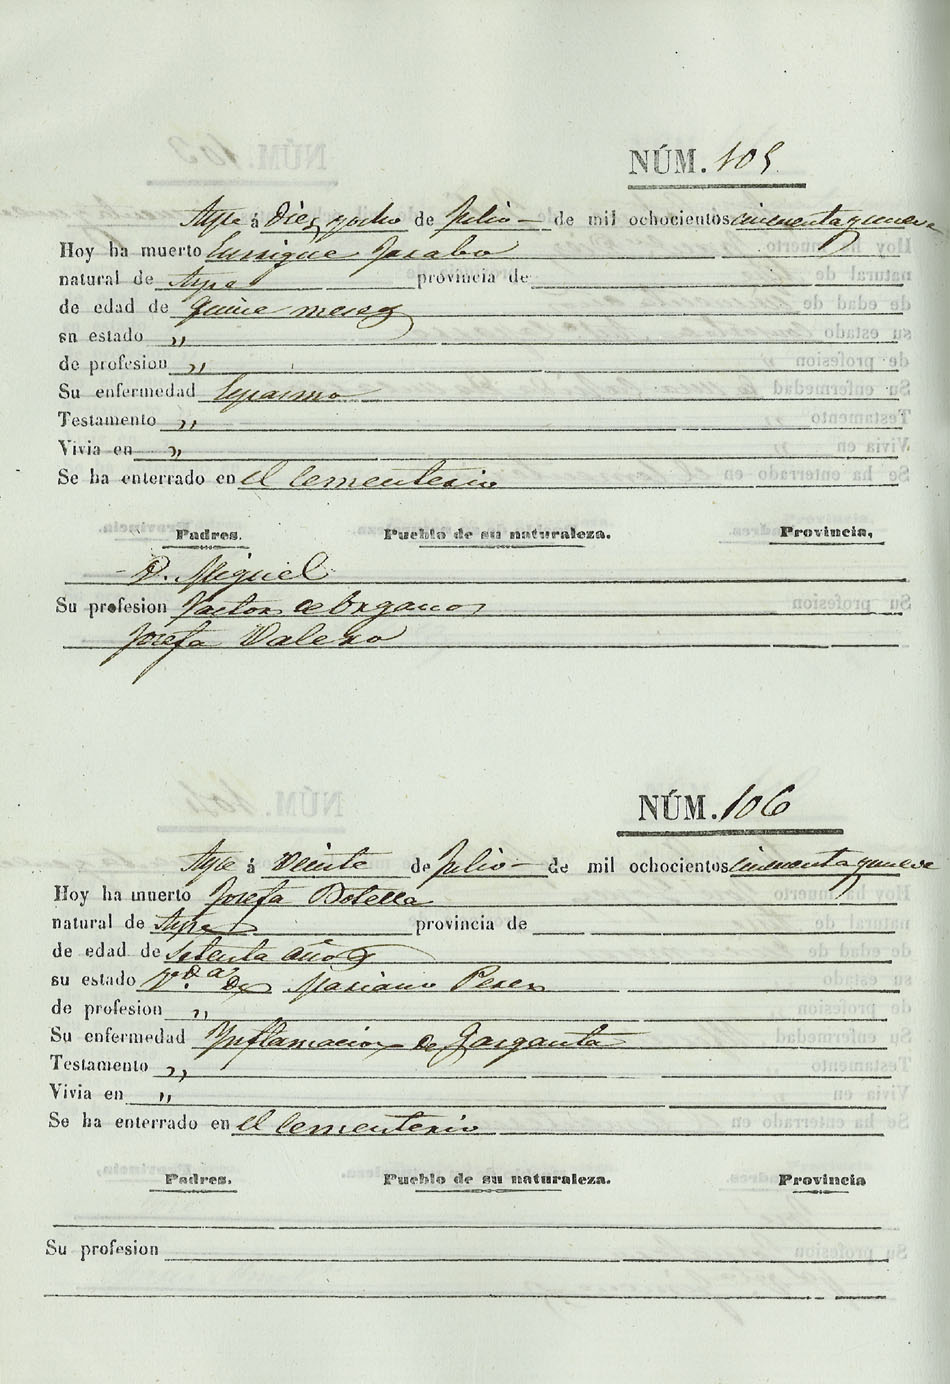 NÚM. 105
Aspe á Diez y ocho de Julio de mil ochocientos cincuenta y nueve
Hoy ha muerto Enrrique
natural de Aspe provincia de
de edad de quince meses
su estado ,,
de profesion ,,
Su enfermedad Espasmo
Testamento ,,
Vivia en ,,
Se ha enterrado en el Cementerio
Padres. Pueblo de su naturaleza. Provincia,
D. Miguel
Su profesion Factor de Organos
Josefa Valero
NÚM. 106
Aspe á Veinte de Julio de mil ochocientos cincuenta y nueve
Hoy ha muerto Josefa Botella
natural de Aspe provincia de
de edad de Setenta años
su estado V.da de Mariano Perez
de profesion ,,
Su enfermedad Ynflamacion de Garganta
Testamento ,,
Vivia en ,,
Se ha enterrado en el Cementerio
Padres. Pueblo de su naturaleza. Provincia
Su profesion